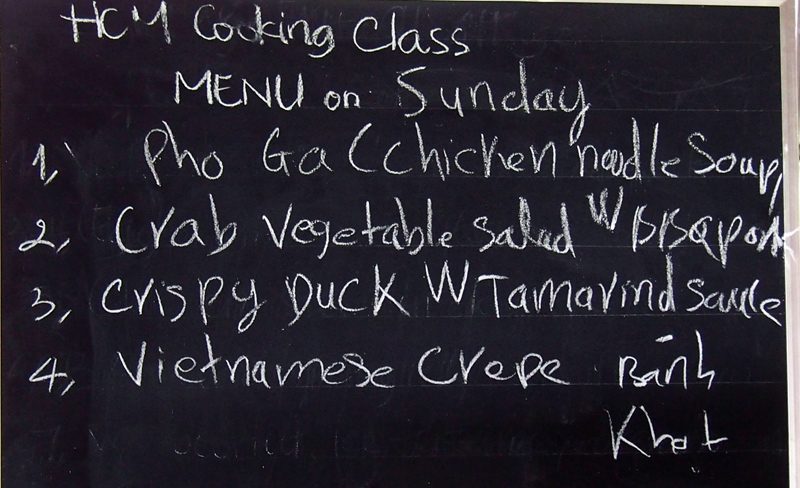 HCM Cooking Class
MENU on Sunday
1, Pho Ga (chicken noodle Soup,
2, Crab Vegetable Salad W BBQ pork
3, Crispy DUCK W Tamarind sauce
4, Vietnamese Crepe Bánh
Khọt